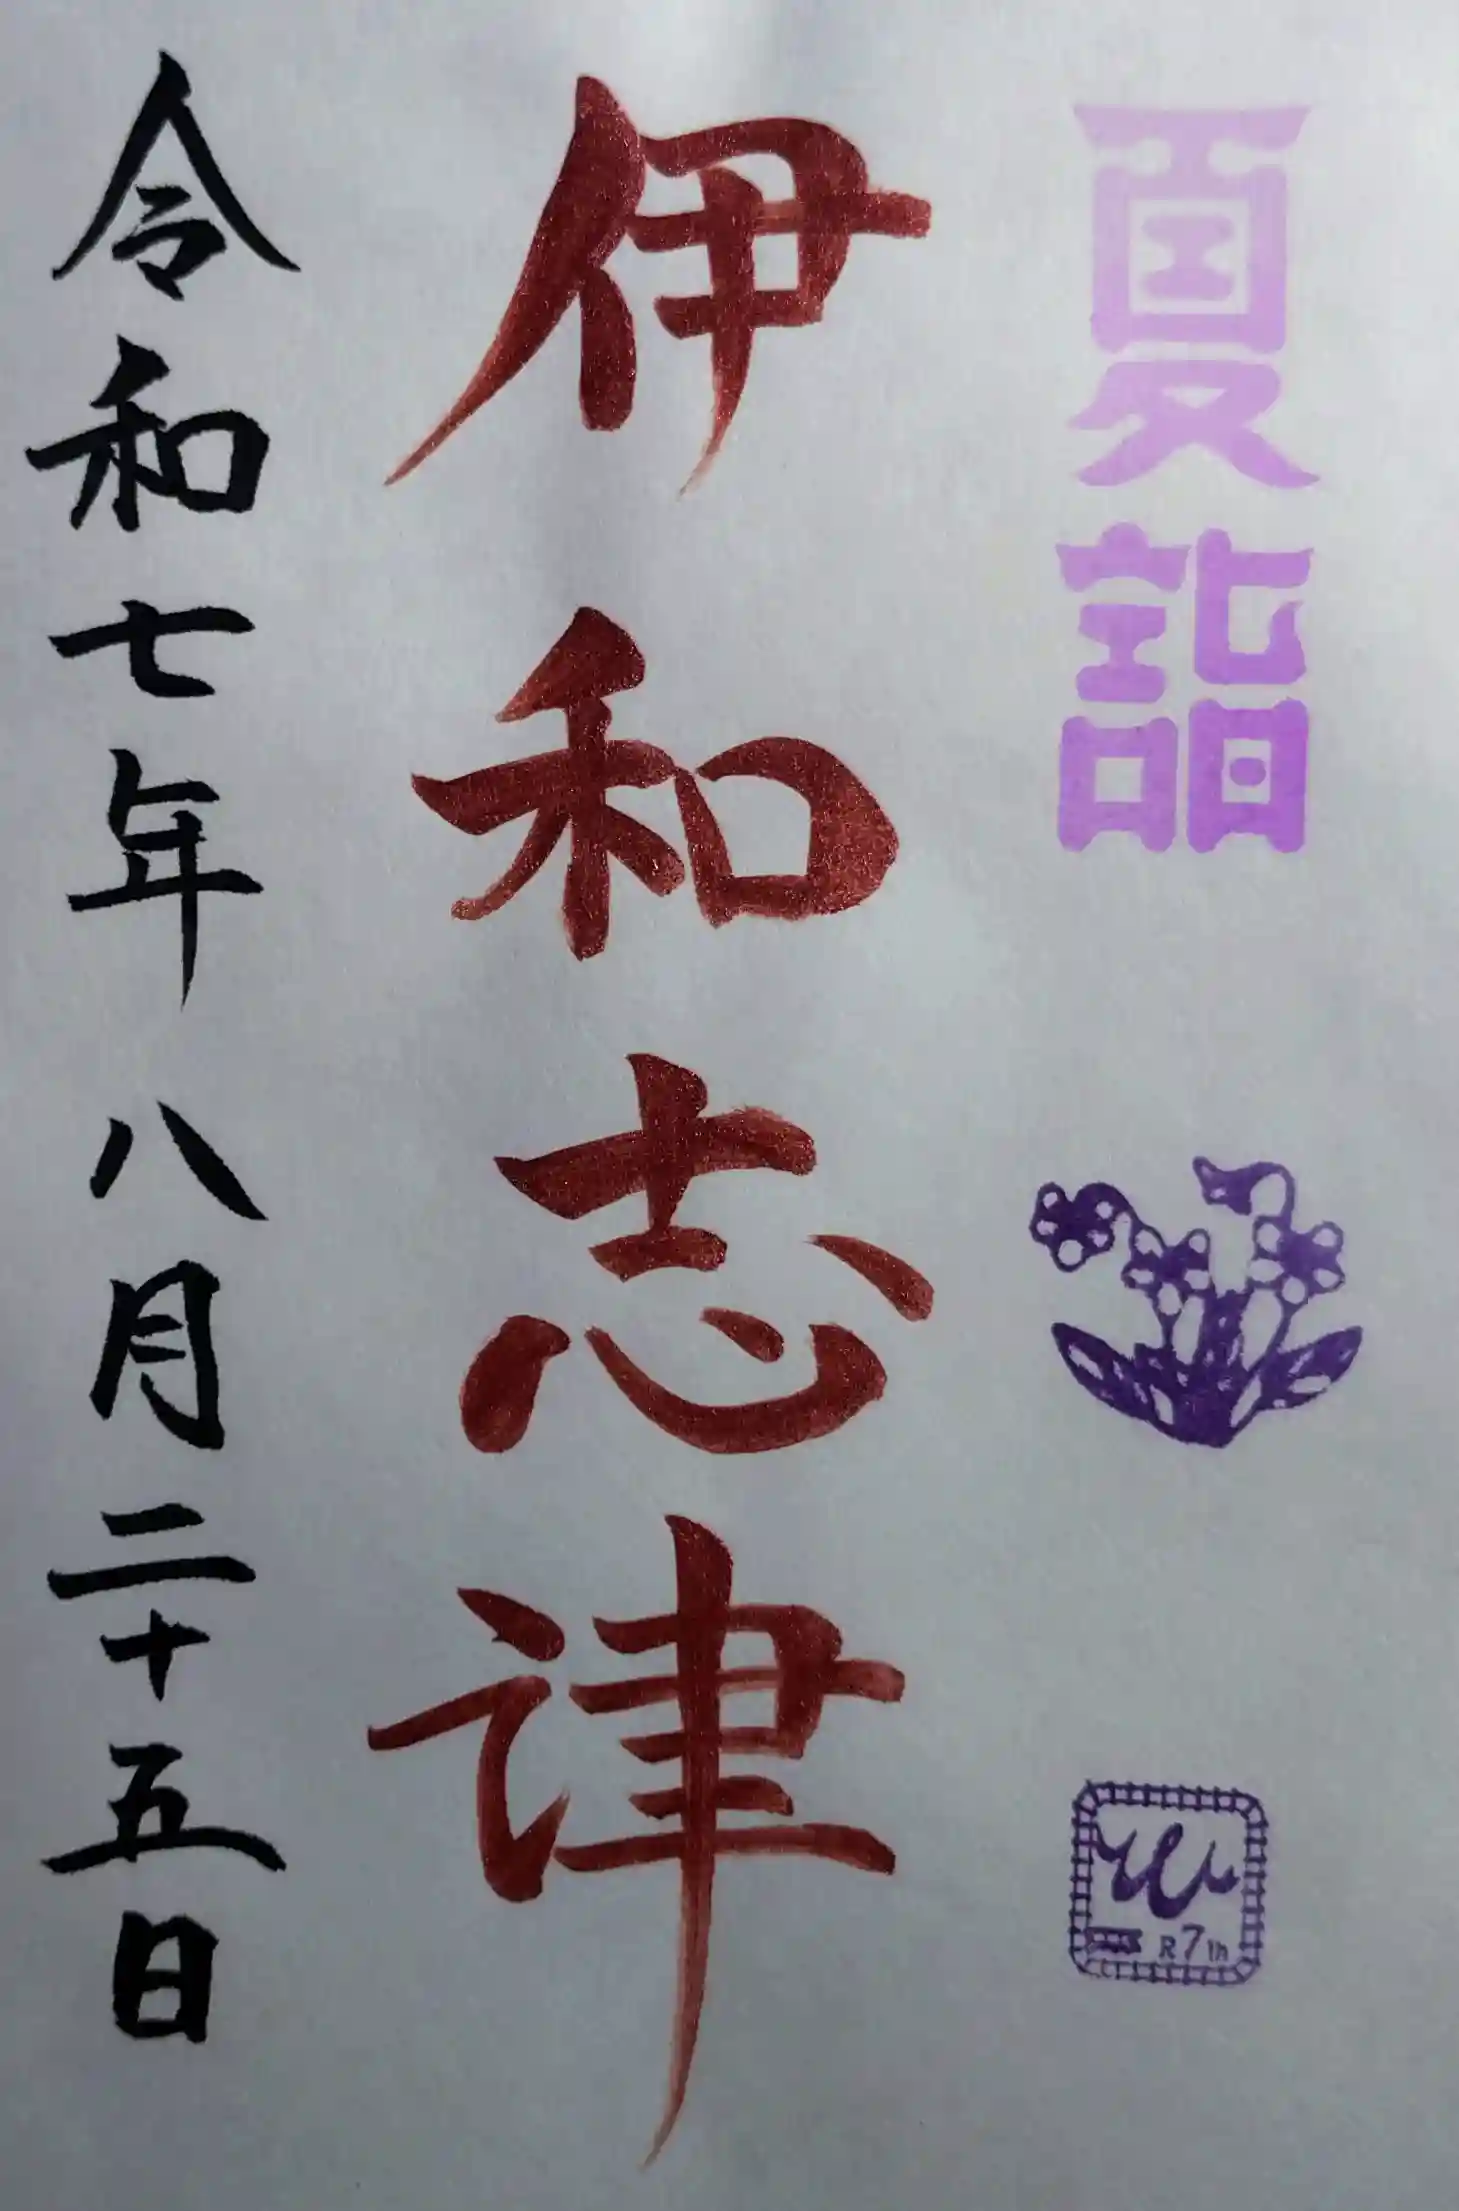 夏詣
W
R7th
伊和志津
令和七年 八月二十五日